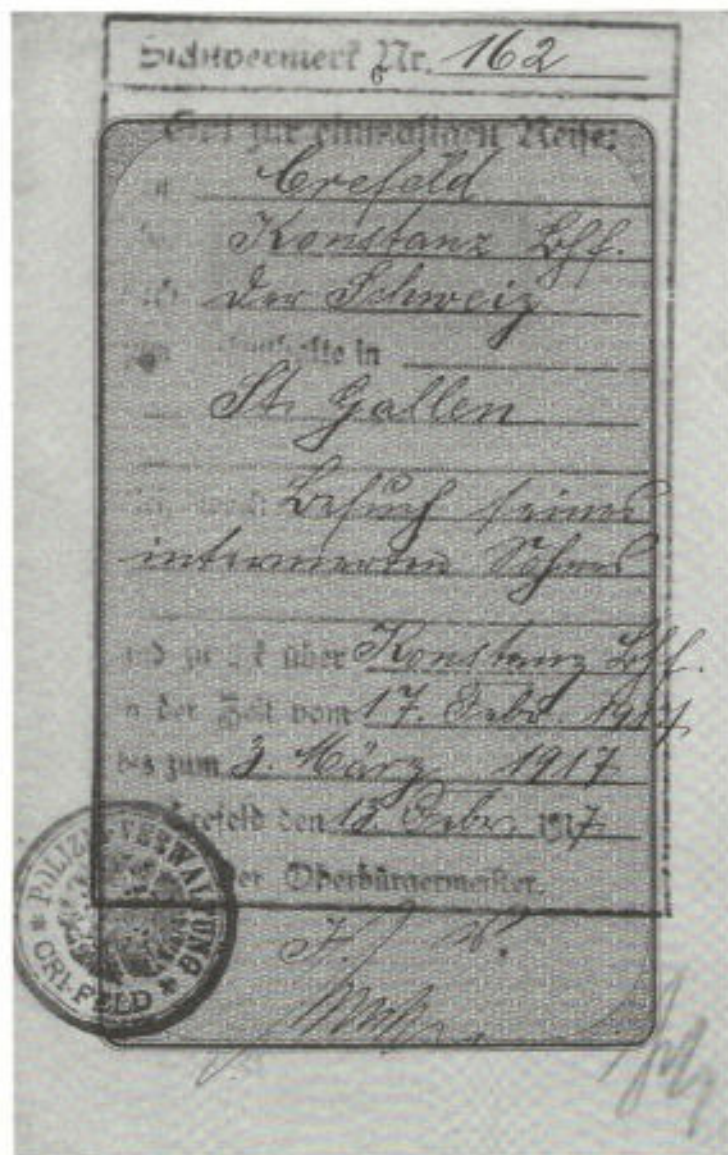 Sichtvermerk Nr. 162
Gut zur einmaligen Reise:
Crefeld
Konstanz Bhf.
der Schweiz
in
St. Gallen
Besuch seines
internierten Sohnes
und zurück über Konstanz Bhf.
in der Zeit vom 17. Febr. 1917
bis zum 3. März 1917
Crefeld den 13. Febr. 1917
Der Oberbürgermeister.
POLIZEI-VERWALTUNG
CREFELD